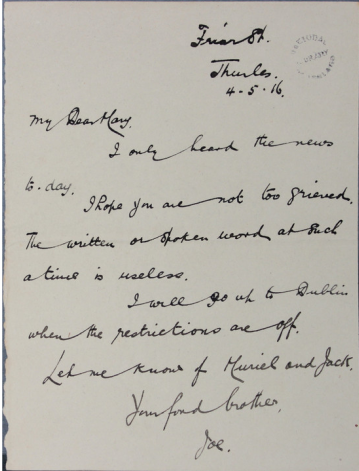 Friar St.
Thurles.
4-5-16.
NATIONAL
LIBRARY
My Dear Mary.
I only heard the news
to-day.
I hope you are not too grieved.
The written or spoken word at such
a time is useless.
I will go up to Dublin
when the restrictions are off.
Let me know of Muriel and Jack.
Your fond brother,
Joe.